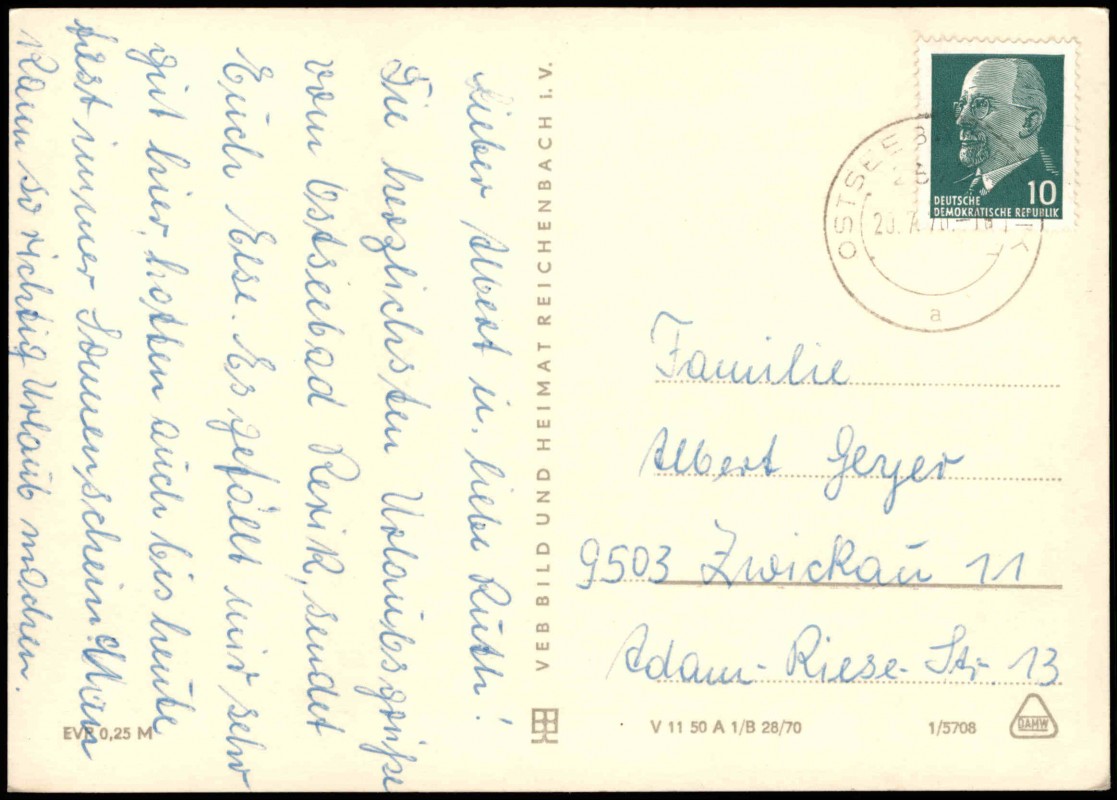 Lieber Albert u. liebe Ruth!
Die herzlichsten Urlaubsgrüße
vom Ostseebad Rerik, sendet
Euch Else. Es gefällt mir sehr
gut hier, hatten auch bis heute
fast immer Sonnenschein. Man
kann so richtig Urlaub machen.
EVP 0,25 M
VEB BILD UND HEIMAT REICHENBACH i. V.
V 11 50 A 1/B 28/70
1/5708
DAMW
OSTSEEB
20. 70.
a
10
DEUTSCHE
DEMOKRATISCHE REPUBLIK
Familie
Albert Geyer
9503 Zwickau 11
Adam-Riese-Str. 13